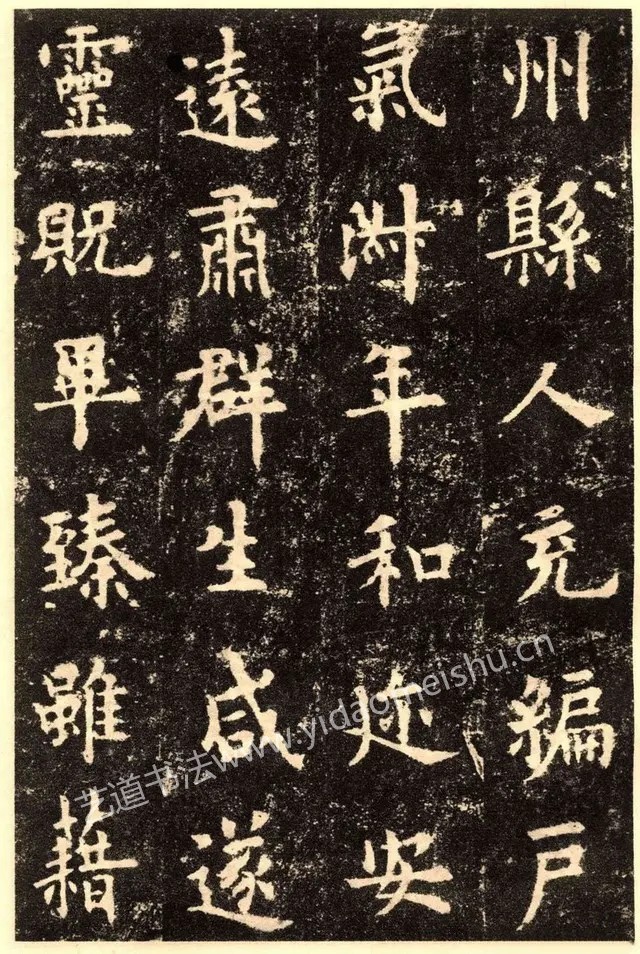 州縣人充編戶
氣淑年和迩安
遠肅群生咸遂
靈貺畢臻雖藉
艺道书法www.yidaomeishu.cn